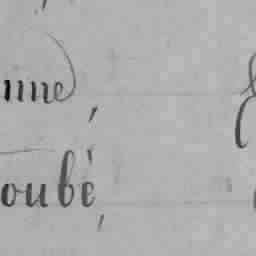 nne,
oubé,